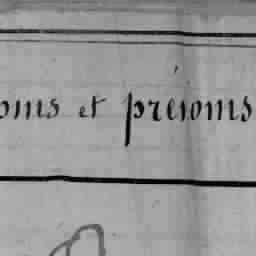 oms et prénoms